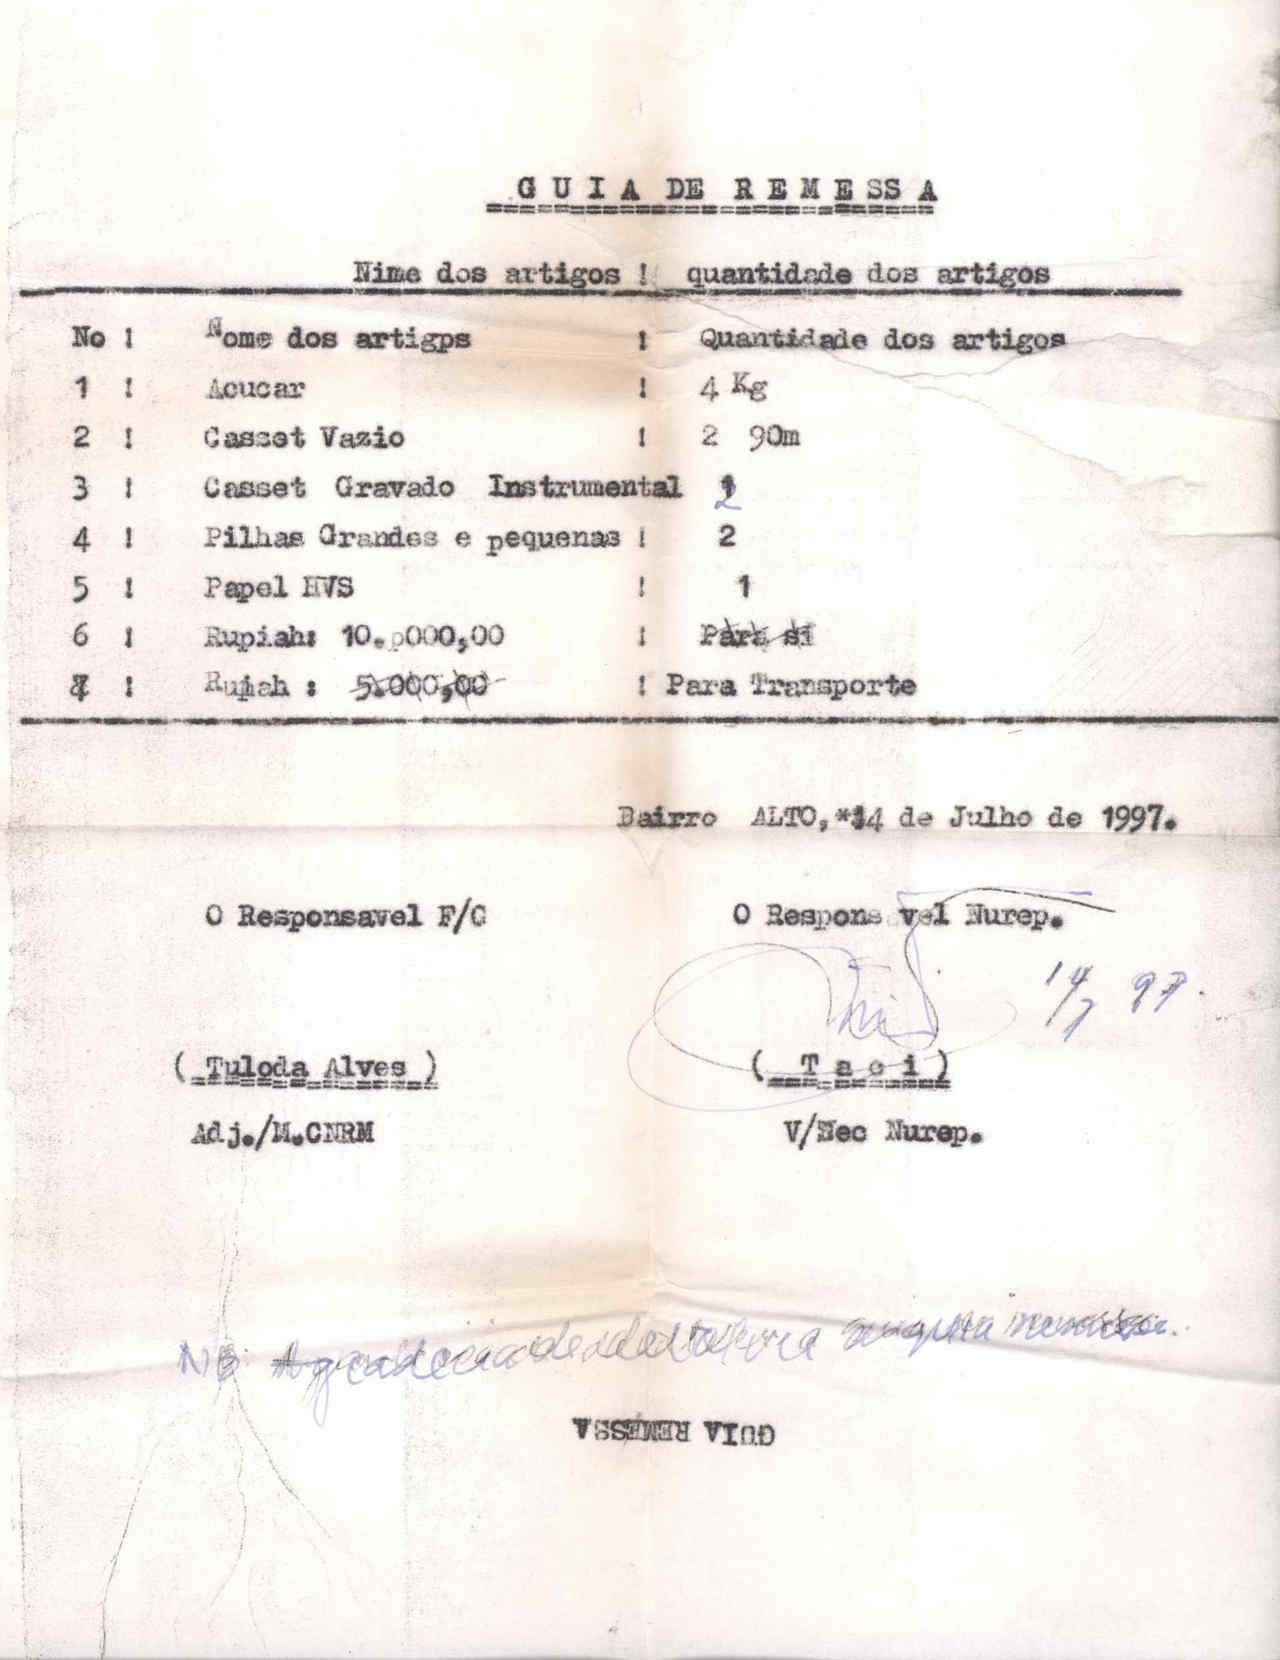 G U I A DE R E M E S S A
Nime dos artigos ! quantidade dos artigos
No ! Nome dos artigps ! Quantidade dos artigos
1 ! Acucar ! 4 Kg
2 ! Casset Vazio ! 2 90m
3 ! Casset Gravado Instrumental 2
4 ! Pilhas Grandes e pequenas ! 2
5 ! Papel HVS ! 1
6 ! Rupiah: 10.000,00 ! Para si
7 ! Ruiah : 5.000,00 ! Para Transporte
Bairro ALTO, *14 de Julho de 1997.
O Responsavel F/C O Responsavel Nurep.
14/7 97.
( Tuloda Alves ) ( T a c i )
Adj./M.CNRM V/Sec Nurep.
NB
GUIA REMESSA